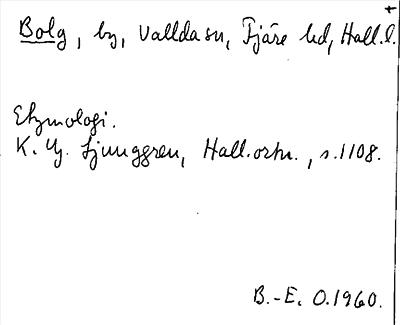 +
Bolg, by, Vallda sn, Fjäre hd, Hall. l.
Etymologi.
K. G. Ljunggren, Hall. ortn., s. 1108.
B.-E. O. 1960.